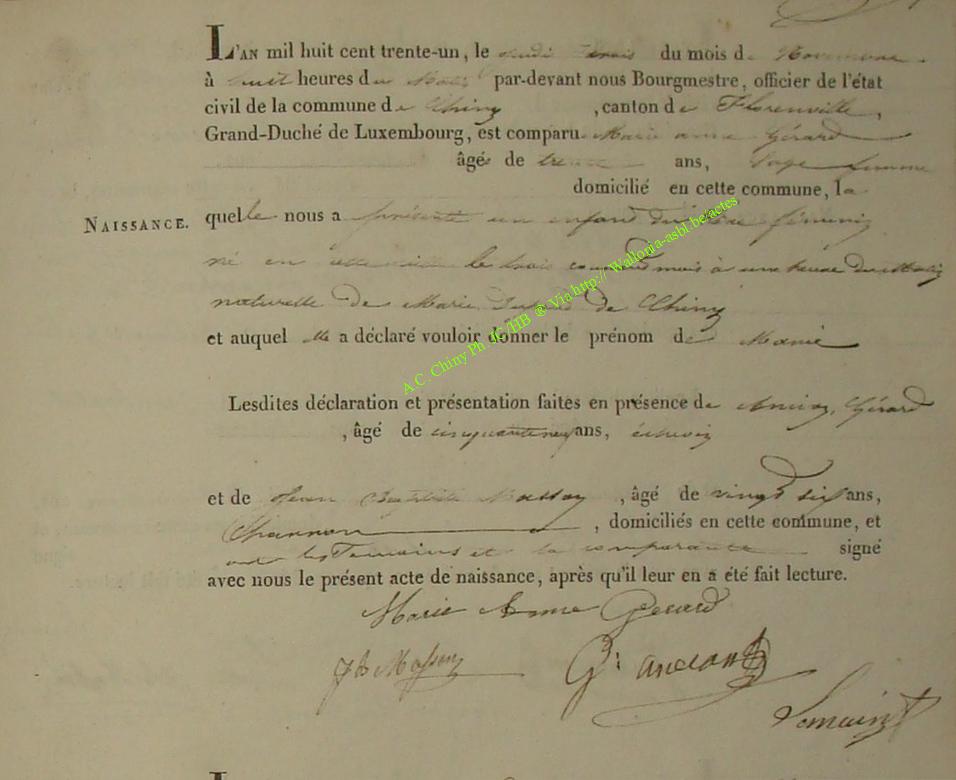 L'AN mil huit cent trente-un, le jeudi trois du mois de Novembre
à huit heures du Matin par-devant nous Bourgmestre, officier de l'état
civil de la commune de Chiny, canton de Florenville,
Grand-Duché de Luxembourg, est comparu Marie anne Gérard
âgée de trente ans, Sage femme
domicilié en cette commune, la
NAISSANCE.
quelle nous a présenté un enfant du sexe féminin
né en cette ville le trois courant mois à une heure du Matin
naturelle de Marie de Chiny
et auquel elle a déclaré vouloir donner le prénom de Marie
A.C. Chiny Ph JG/HB ® Via http:// Wallonia-asbl.be/actes
Lesdites déclaration et présentation faites en présence de Gérard
, âgé de cinquante neuf ans, échevin
et de Jean Baptiste Masson, âgé de vingt six ans,
, domiciliés en cette commune, et
ont les Temoins et la comparante signé
avec nous le présent acte de naissance, après qu'il leur en a été fait lecture.
Marie Anne Gerard
JB Masson